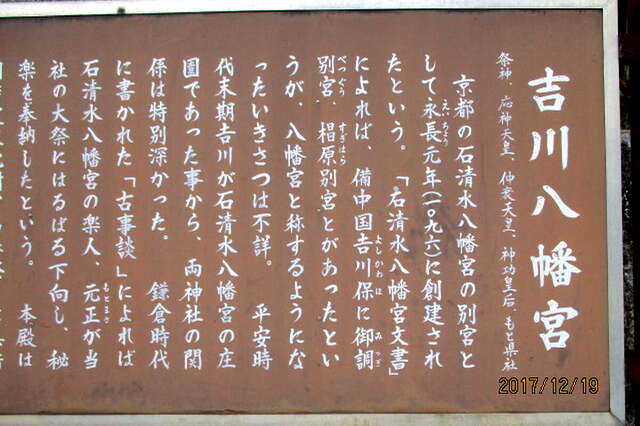 吉川八幡宮
祭神、応神天皇、仲哀天皇、神功皇后、もと県社
京都の石清水八幡宮の別宮と
して永長元年(一〇九六)に創建され
えいちょう
たという。「石清水八幡宮文書」
によれば、備中国吉川保に御調
よしかわほ
みつぎ
別宮、椙原別宮とがあったとい
べつぐう
すぎはら
うが、八幡宮と称するようにな
ったいきさつは不詳。 平安時
代末期吉川が石清水八幡宮の庄
園であった事から、両神社の関
係は特別深かった。 鎌倉時代
に書かれた「古事談」によれば
石清水八幡宮の楽人、元正が当
もとまさ
社の大祭にはるばる下向し、秘
楽を奉納したという。 本殿は
2017/12/19